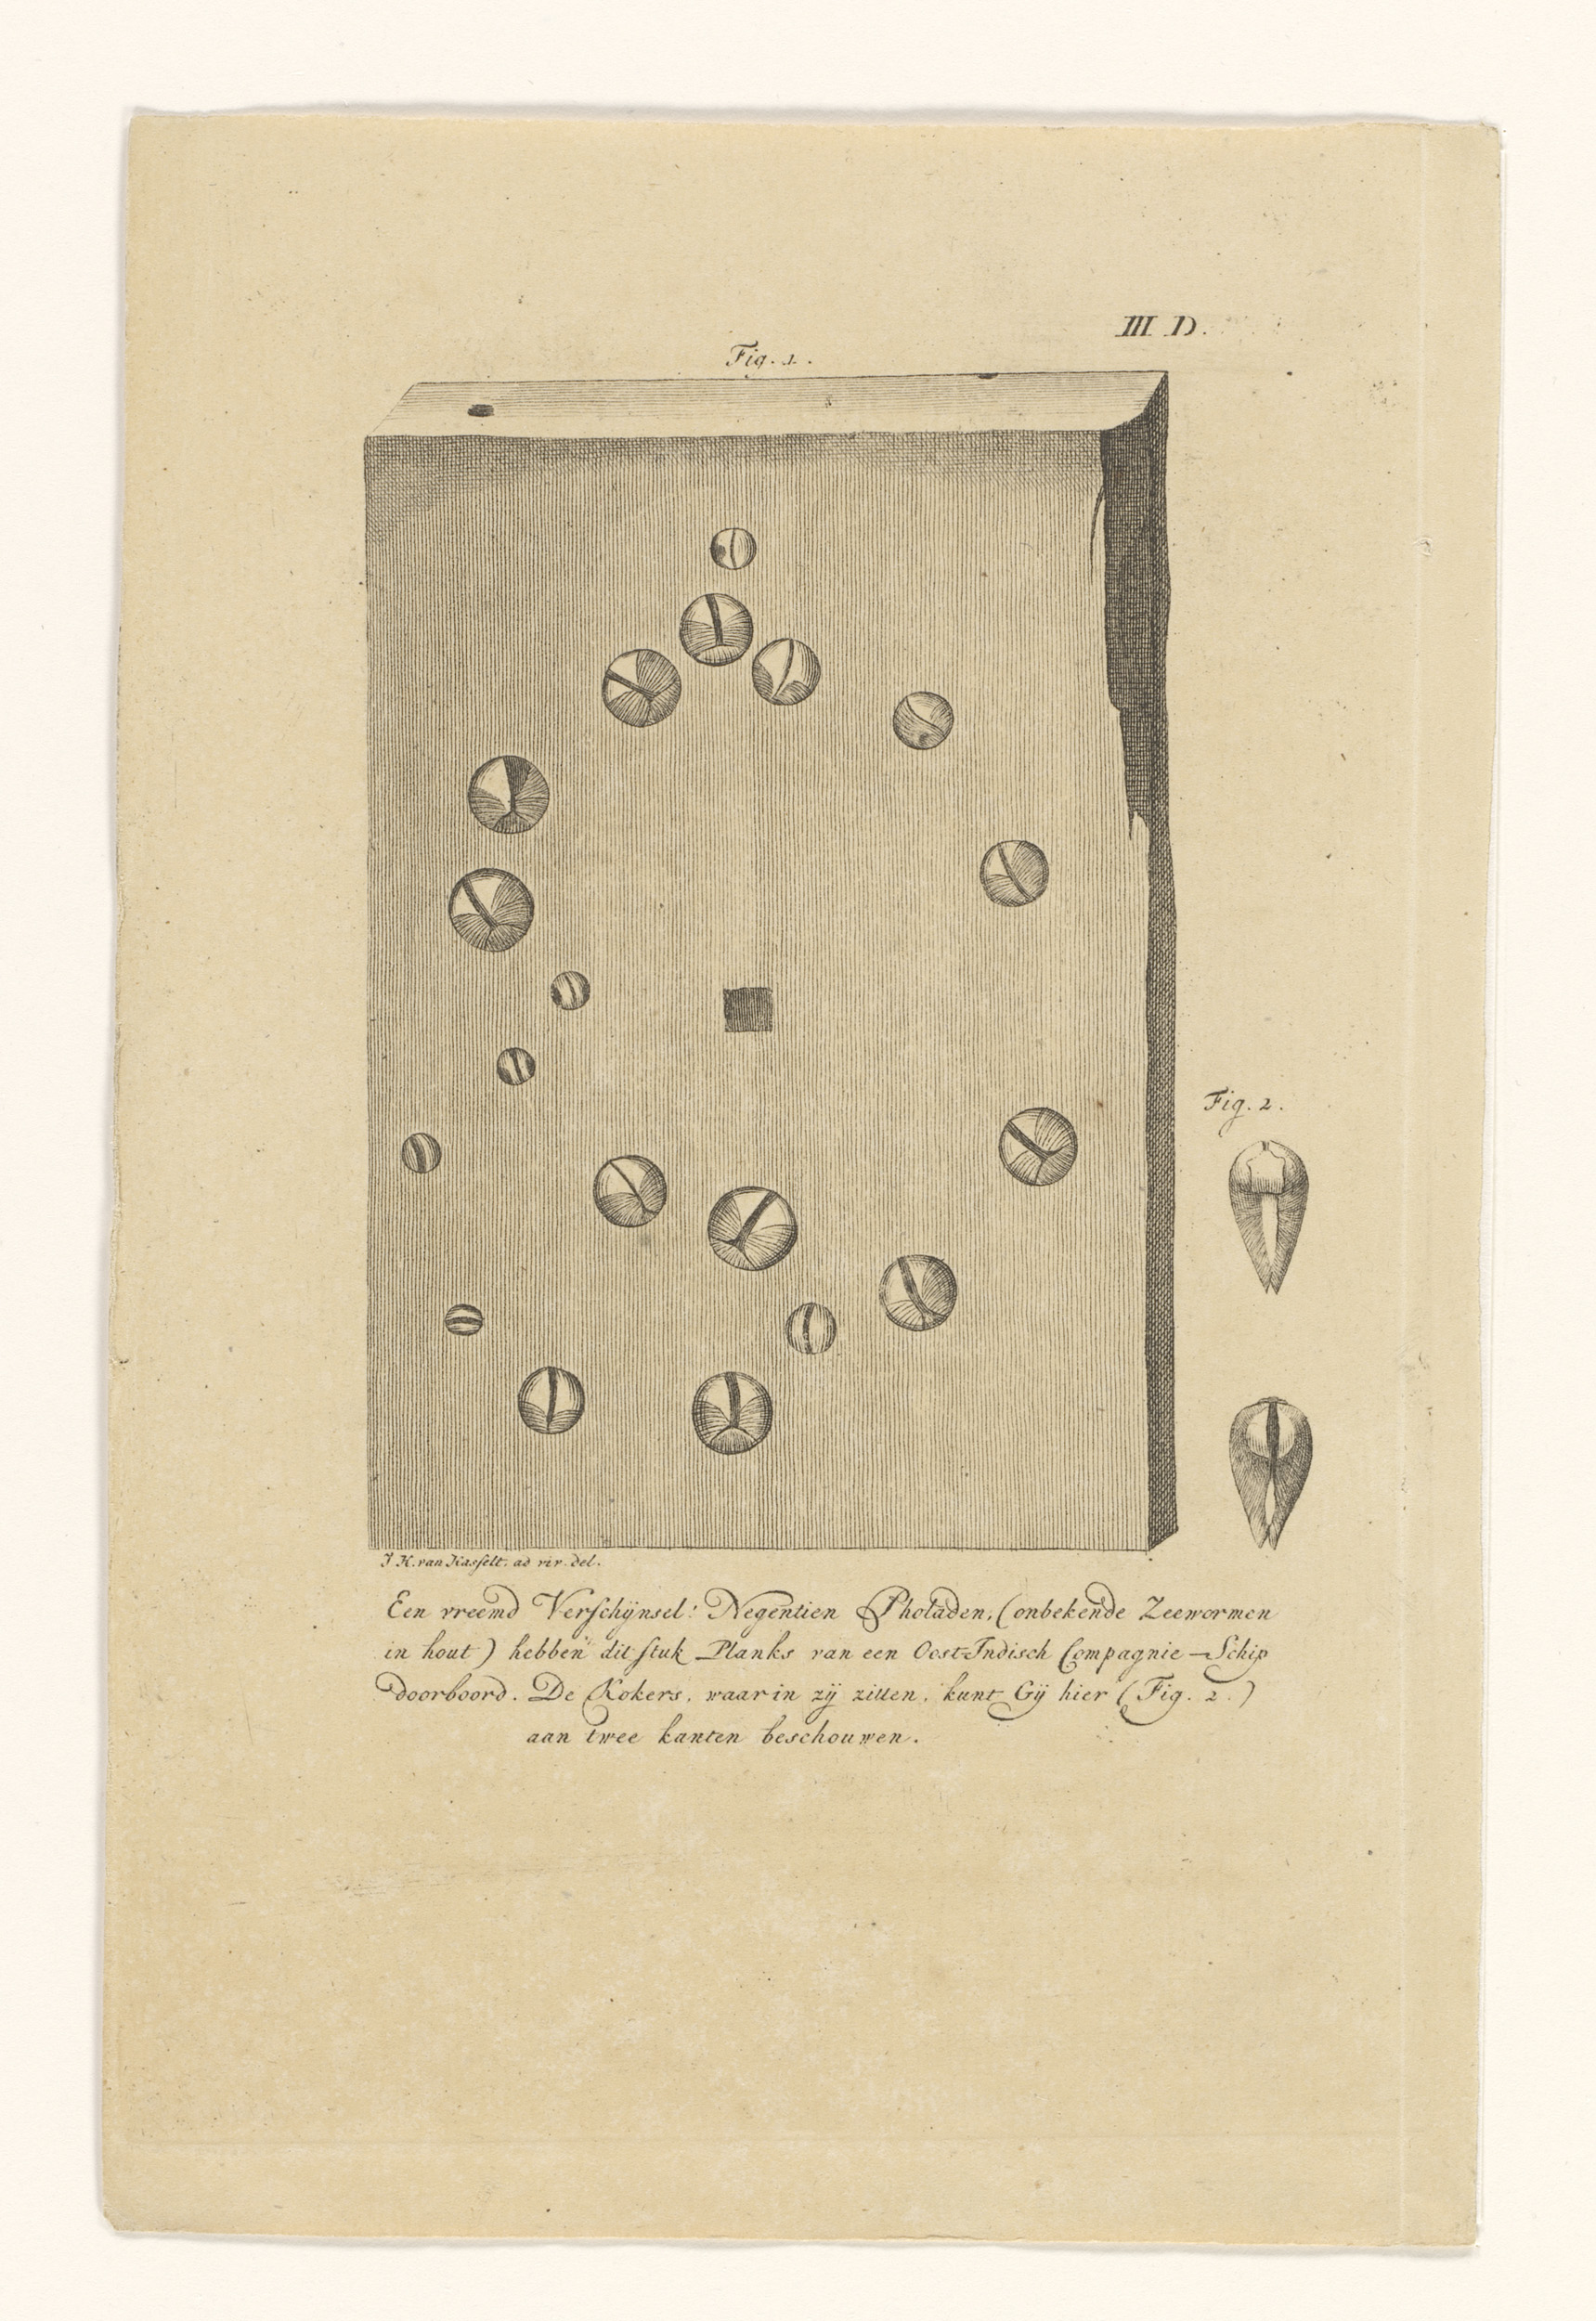 III D.
Fig. 1.
Fig. 2.
J K. van Kasselt. ad viv. del.
Een vreemd Verschÿnsel: Negentien Pholaden, (onbekende Zeewormen
in hout) hebben dit stuk Planks van een Oost-Indisch Compagnie-Schip
doorboord. De Kokers, waar in zÿ zitten, kunt Gÿ hier (Fig. 2.)
aan twee kanten beschouwen.